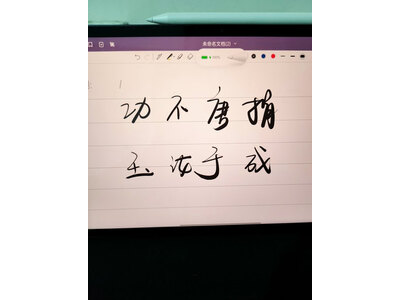 未命名文档(2)
功不唐捐
玉汝于成